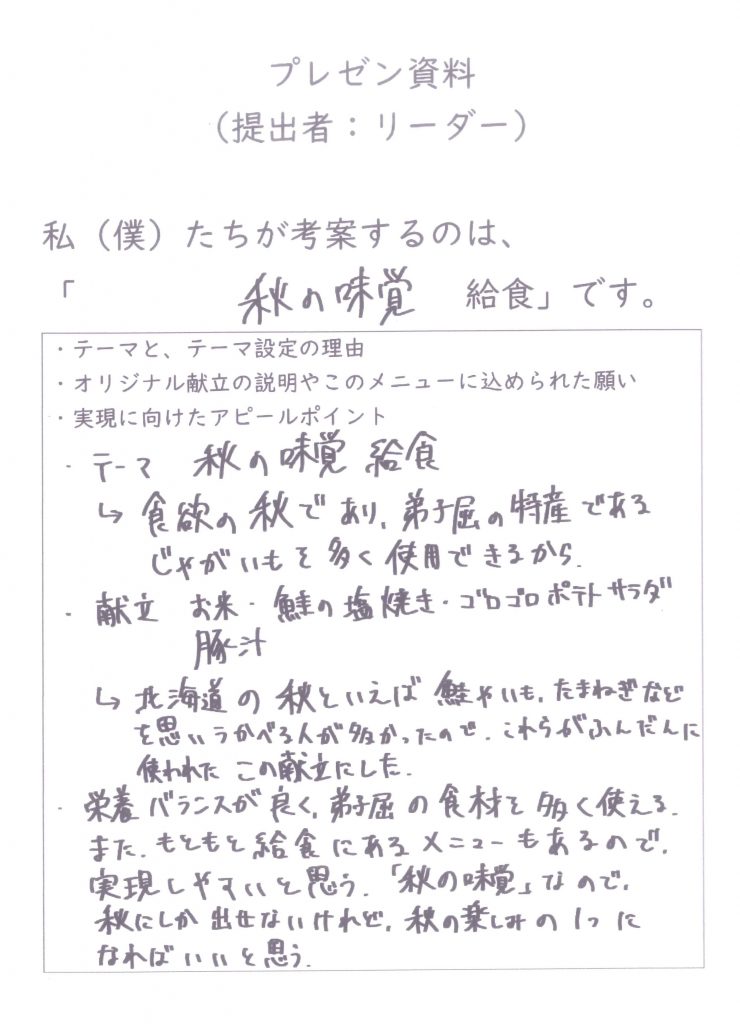 プレゼン資料
（提出者：リーダー）
私（僕）たちが考案するのは、
「 秋の味覚 給食」です。
・テーマと、テーマ設定の理由
・オリジナル献立の説明やこのメニューに込められた願い
・実現に向けたアピールポイント
・テーマ 秋の味覚 給食
↳ 食欲の秋であり、弟子屈の特産である
じゃがいもを多く使用できるから.
・献立 お米・鮭の塩焼き・ゴロゴロポテトサラダ
豚汁
↳ 北海道の秋といえば鮭やいも、たまねぎなど
を思いうかべる人が多かったので、これらがふんだんに
使われたこの献立にした.
・栄養バランスが良く、弟子屈の食材を多く使える.
また、もともと給食にあるメニューもあるので、
実現しやすいと思う.「秋の味覚」なので、
秋にしか出せないけれど、秋の楽しみの1つに
なればいいと思う.